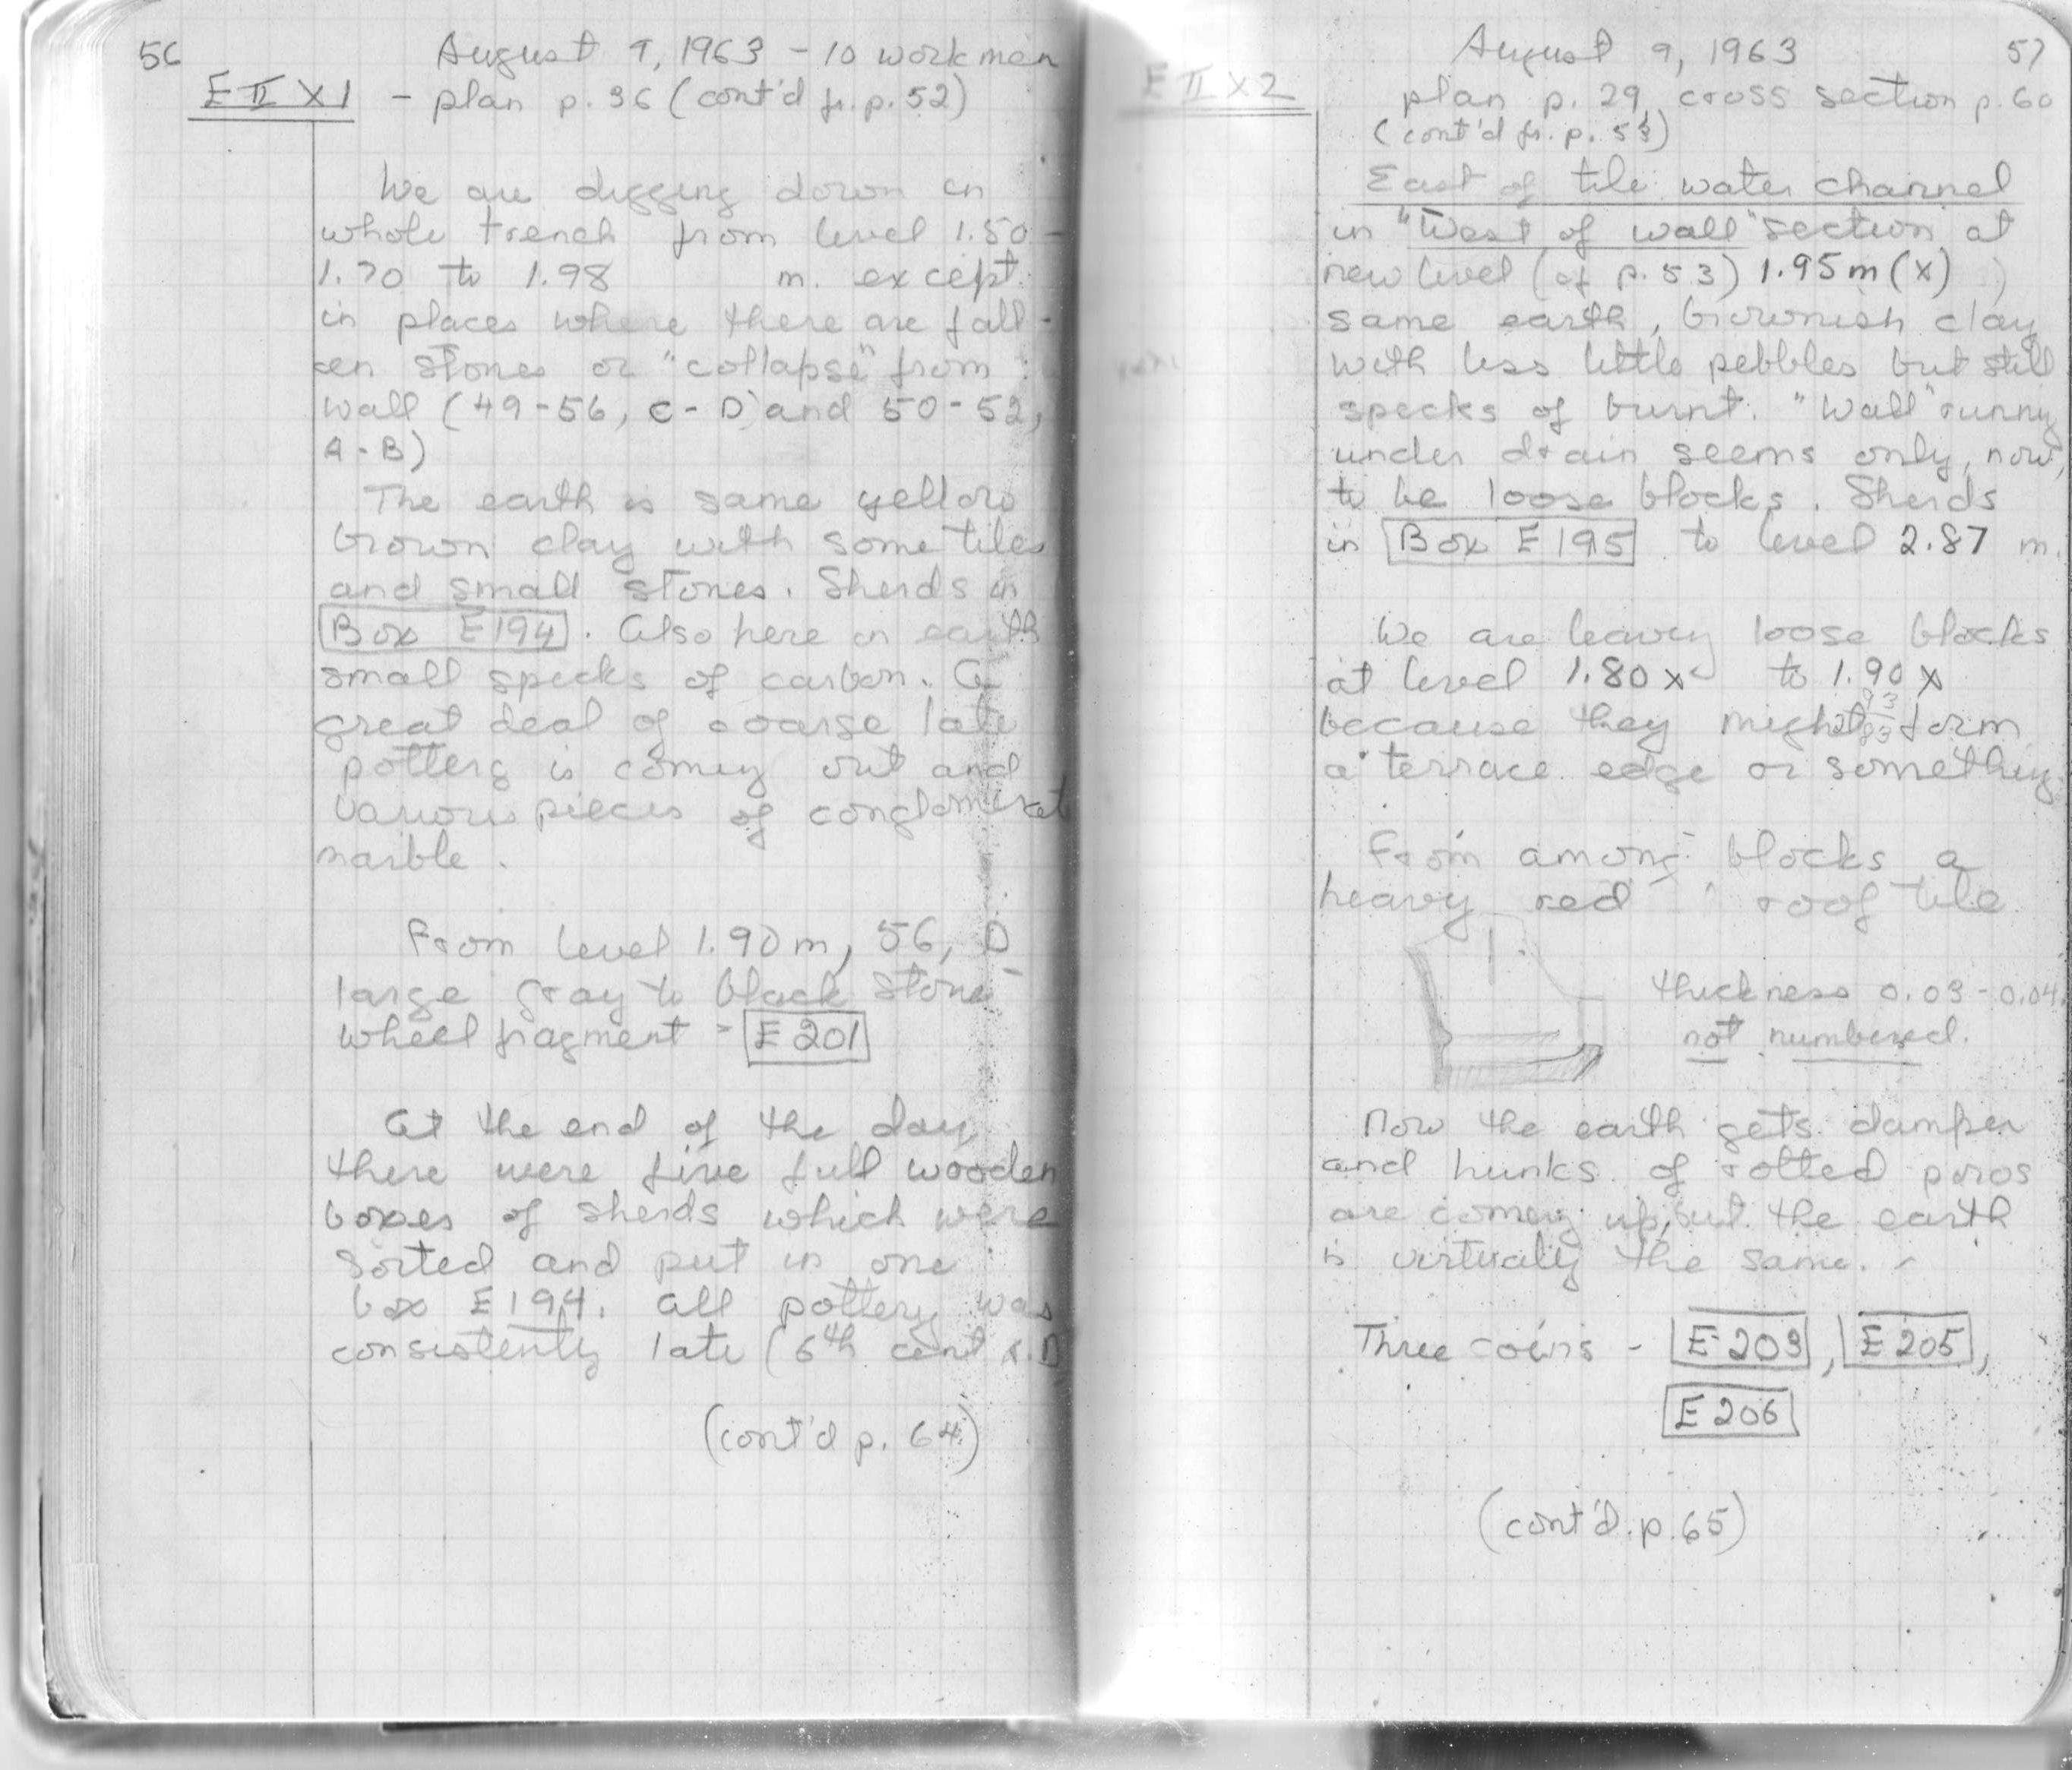 56
August 9, 1963 - 10 workmen
E II X1 - plan p. 36 (cont'd fr. p. 52)
We are digging down in
whole trench from level 1.50 -
1.70 to 1.98 m. except
in places where there are fall-
en stones or "collapse" from
wall (49-56, C-D) and 50-52,
A-B)
The earth is same yellow
brown clay with some tiles
and small stones. Sherds in
Box E194. Also here in earth
small specks of carbon. A
great deal of coarse late
pottery is coming out and
various pieces of conglomerat
marble.
From level 1.90 m, 56, D
large gray to black stone
wheel fragment - E 201
At the end of the day
there were five full wooden
boxes of sherds which were
sorted and put in one
box E194. All pottery was
consistently late (6th cent A.D
(cont'd p. 64)
August 9, 1963
57
E II X2
plan p. 29, cross section p. 60
(cont'd fr. p. 53)
East of tile water channel
in "West of wall" section at
new level (of p. 53) 1.95 m (x)
same earth, brownish clay
with less little pebbles but still
specks of burnt. "Wall" runng
under drain seems only, now,
to be loose blocks. Sherds
in Box E195 to level 2.87 m.
We are leaving loose blocks
at level 1.80 x to 1.90 x
because they might form
a terrace edge or something
From among blocks a
heavy red roof tile
thickness 0.03 - 0.04.
not numbered.
Now the earth gets damper
and hunks of rotted poros
are coming up, but the earth
is virtually the same.
Three coins - E 203, E 205,
E 206
(cont'd. p. 65)